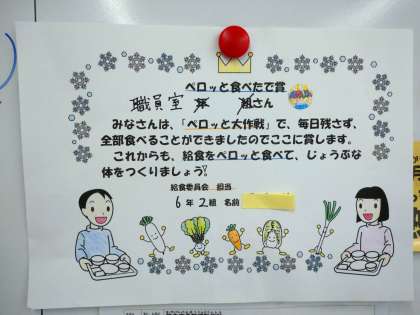 ペロッと食べたで賞
職員室 年 組さん
みなさんは、「ペロッと大作戦」で、毎日残さず、
全部食べることができましたのでここに賞します。
これからも、給食をペロッと食べて、じょうぶな
体をつくりましょう!
給食委員会 担当
6年2組 名前